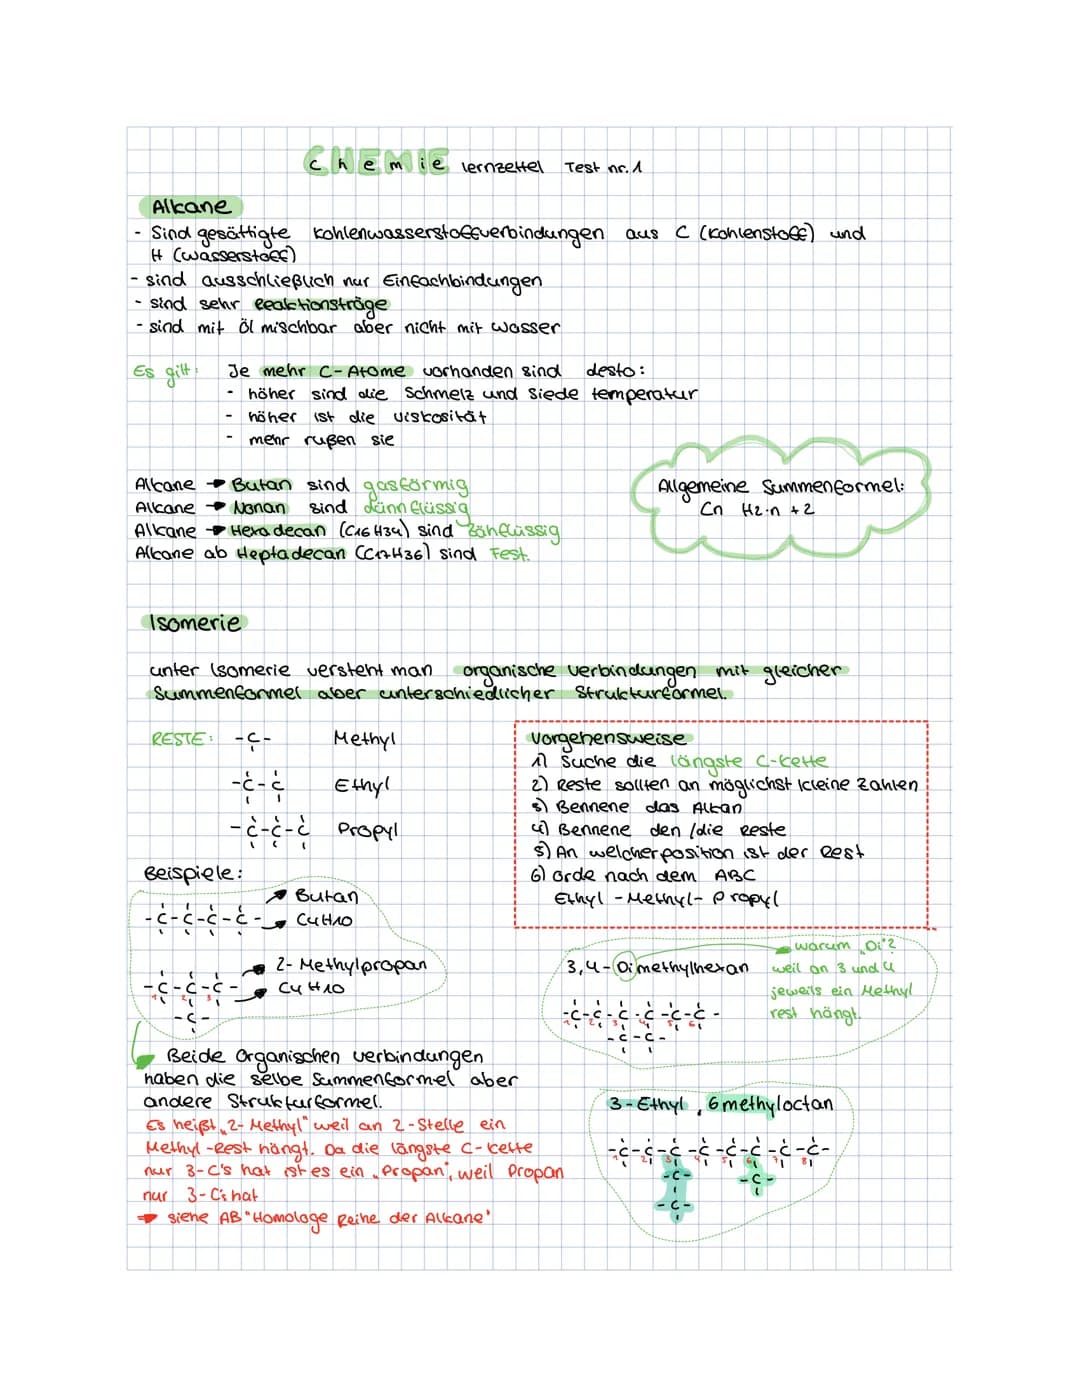 CHEMIE lernzettel Test nr. 1
Alkane
- Sind gesättigte Kohlenwasserstoffverbindungen aus C (Kohlenstoff) und
H (Wasserstoff)
- sind ausschließlich nur Einfachbindungen
- sind sehr Reaktionsträge
- sind mit Öl mischbar aber nicht mit Wasser
Es gilt: Je mehr C-Atome vorhanden sind desto:
- höher sind die Schmelz und Siede temperatur
- höher ist die Viskosität
- mehr rußen sie
Alkane → Butan sind gasförmig
Alkane → Nonan sind dünnflüssig
Alkane → Hexadecan (C16H34) sind Zähflüssig
Alkane ab Heptadecan (C17H36) sind Fest.
Allgemeine Summenformel:
Cn H2·n +2
Isomerie
unter Isomerie versteht man organische Verbindungen mit gleicher
Summenformel aber unterschiedlicher Strukturformel.
RESTE: -C- Methyl
-C-C Ethyl
-C-C-C Propyl
Vorgehensweise
1) Suche die längste C-Kette
2) Reste sollten an möglichst kleine Zahlen
3) Bennene das Alkan
4) Bennene den/die Reste
5) An welcher position ist der Rest
6) Orde nach dem ABC
Ethyl - Methyl - Propyl
Beispiele:
Butan
-C-C-C-C- C4H10
2-Methylpropan
-C-C-C- C4H10
1 2 3
-C-
Beide Organischen verbindungen
haben die selbe Summenformel aber
andere Strukturformel.
Es heißt „2-Methyl" weil an 2-Stelle ein
Methyl-Rest hängt. Da die längste C-Kette
nur 3-C's hat ist es ein „Propan", weil Propan
nur 3-C's hat
→ siehe AB "Homologe Reihe der Alkane"
3,4-Dimethylhexan
warum „Di"?
weil an 3 und 4
jeweils ein Methyl
rest hängt.
-C-C-C-C-C-C-
1 2 3 4 5 6
-C-C-
3-Ethyl, 6methyloctan
-C-C-C-C-C-C-C-C-
1 2 3 4 5 6 7 8
-C- -C-
-C-